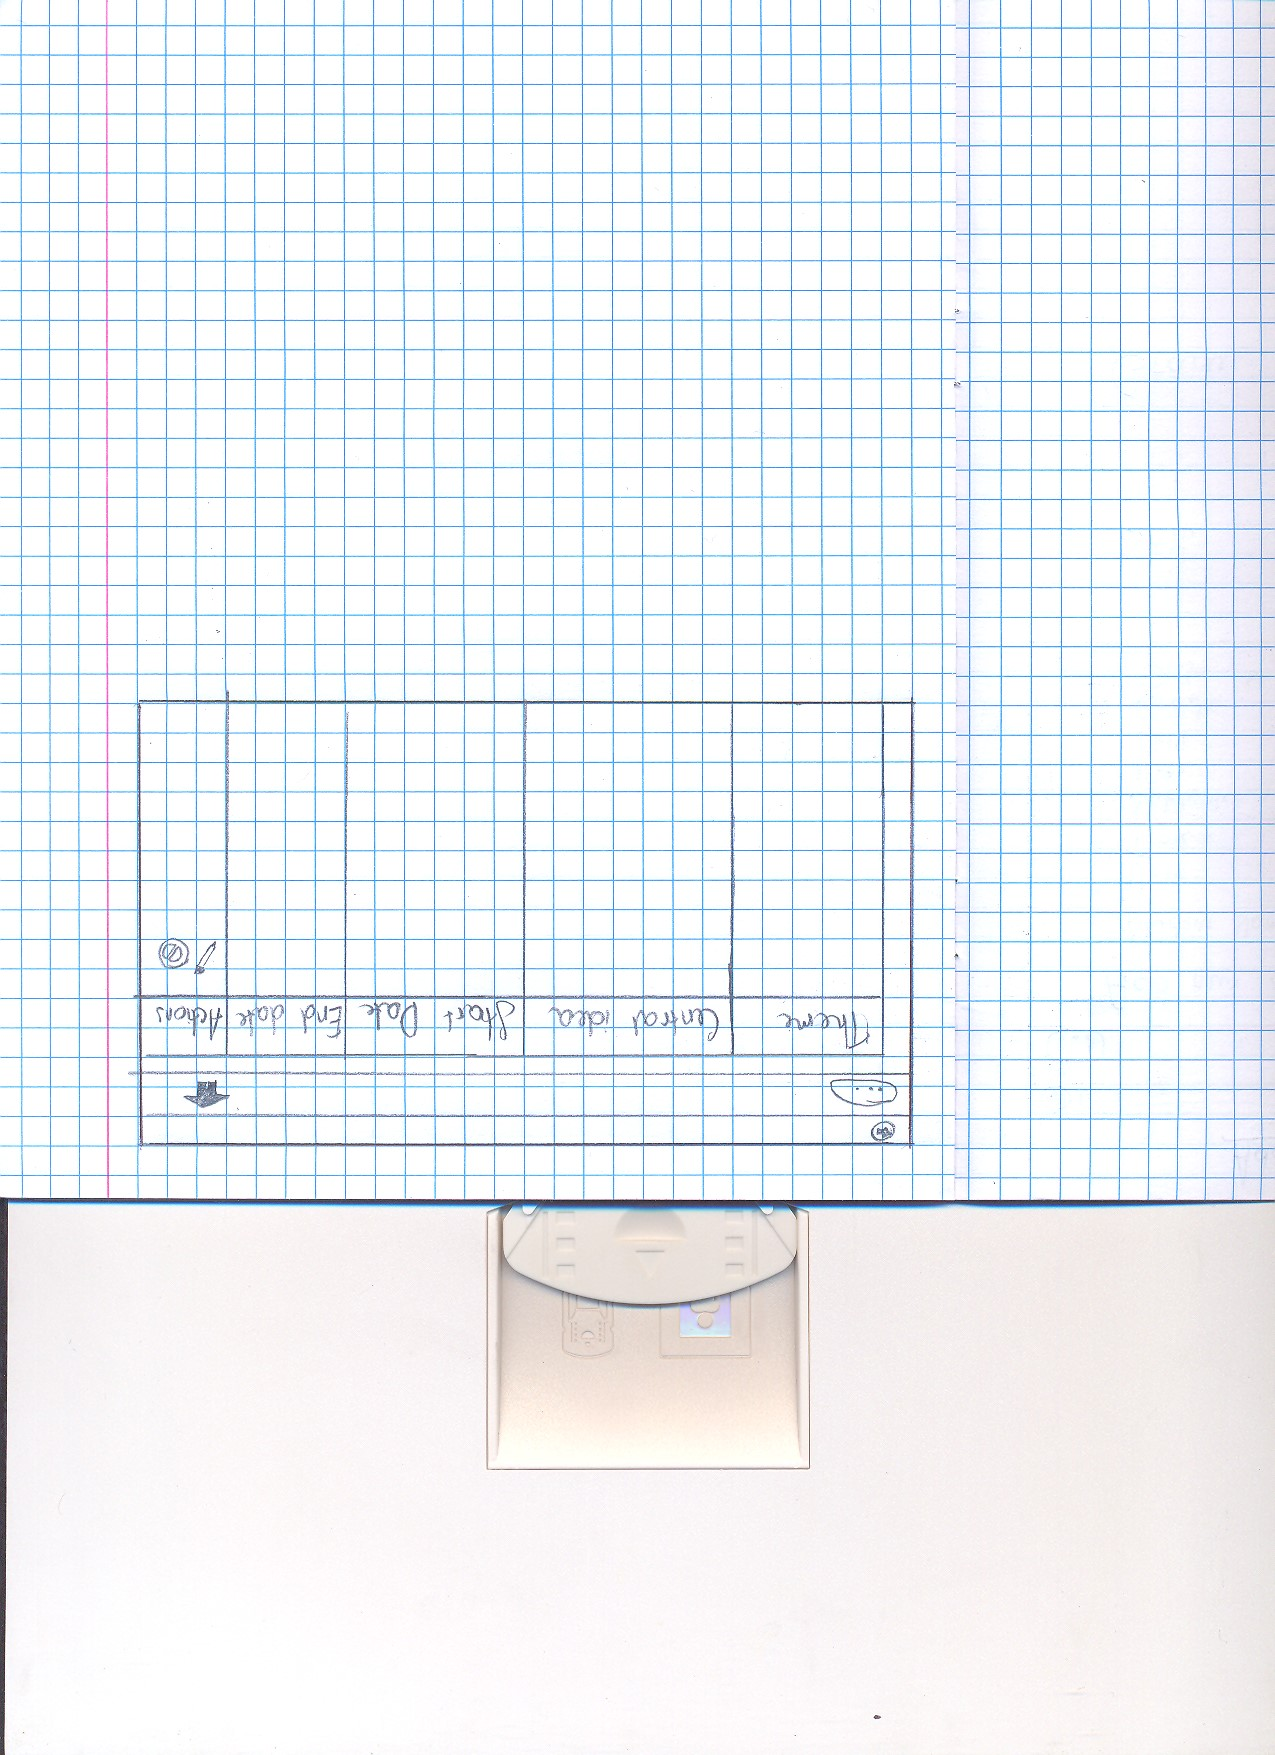 Theme Central idea Start Date End date Actions